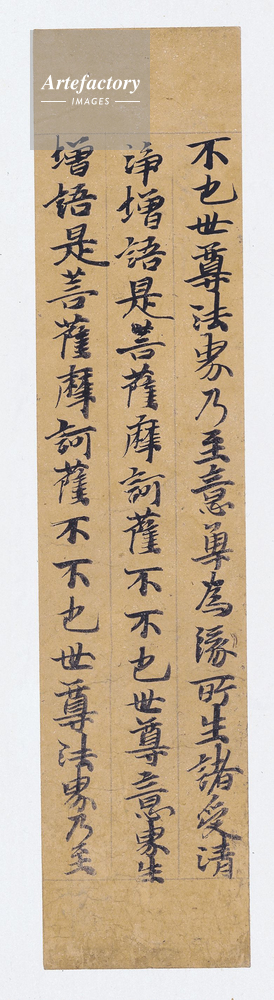 Artefactory
IMAGES
不也世尊法界乃至意觸為緣所生諸受清
淨增語是菩薩摩訶薩不不也世尊意界生
增語是菩薩摩訶薩不不也世尊法界乃至